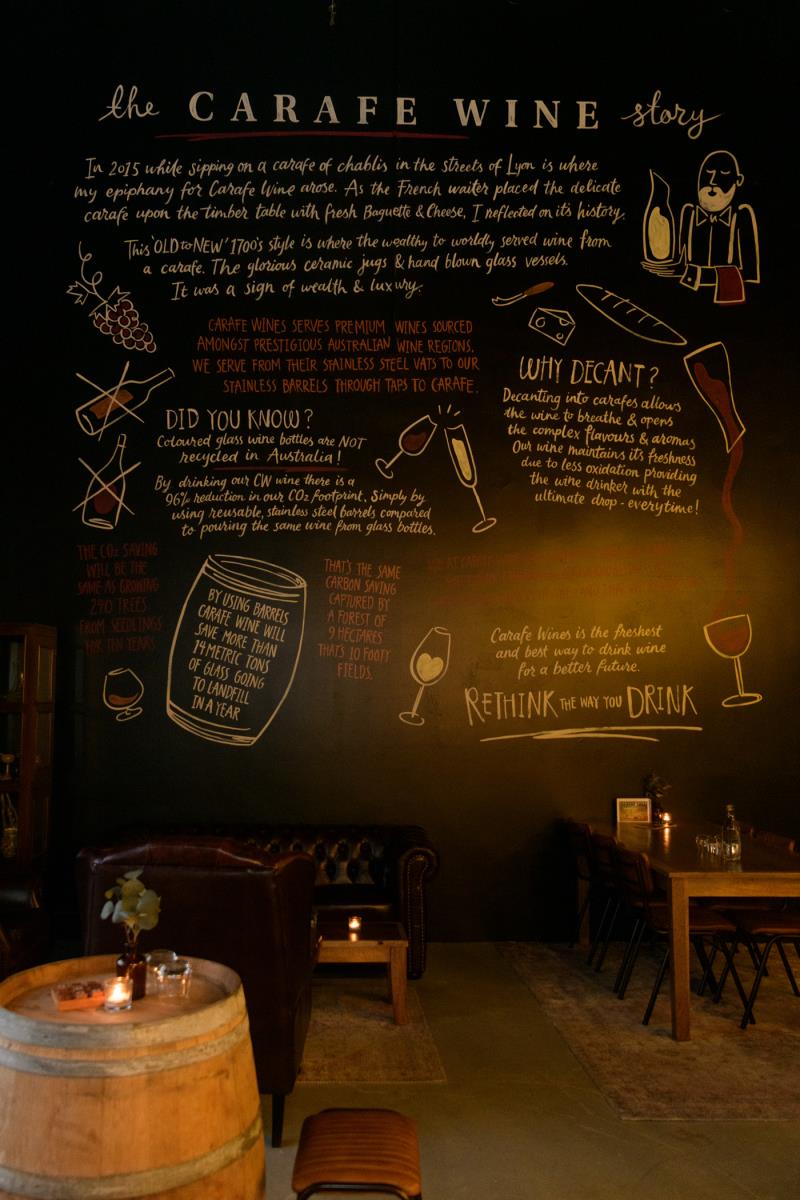 the CARAFE WINE story
In 2015 while sipping on a carafe of chablis in the streets of Lyon is where
my epiphany for Carafe Wine arose. As the French waiter placed the delicate
carafe upon the timber table with fresh Baguette & Cheese, I reflected on its history.
This 'OLD to NEW' 1700's style is where the wealthy to worldly served wine from
a carafe. The glorious ceramic jugs & hand blown glass vessels.
It was a sign of wealth & luxury.
CARAFE WINES SERVES PREMIUM WINES SOURCED
AMONGST PRESTIGIOUS AUSTRALIAN WINE REGIONS.
WE SERVE FROM THEIR STAINLESS STEEL VATS TO OUR
STAINLESS BARRELS THROUGH TAPS TO CARAFE.
WHY DECANT?
Decanting into carafes allows
the wine to breathe & opens
the complex flavours & aromas
Our wine maintains its freshness
due to less oxidation providing
the wine drinker with the
ultimate drop - everytime!
DID YOU KNOW?
Coloured glass wine bottles are NOT
recycled in Australia!
By drinking our CW wine there is a
96% reduction in our CO2 footprint. Simply by
using reusable, stainless steel barrels compared
to pouring the same wine from glass bottles.
THE CO2 SAVING
WILL BE THE
SAME AS GROWING
290 TREES
FROM SEEDLINGS
FOR TEN YEARS
BY USING BARRELS
CARAFE WINE WILL
SAVE MORE THAN
14 METRIC TONS
OF GLASS GOING
TO LANDFILL
IN A YEAR
THAT'S THE SAME
CARBON SAVING
CAPTURED BY
A FOREST OF
9 HECTARES
THAT'S 10 FOOTY
FIELDS.
Carafe Wines is the freshest
and best way to drink wine
for a better future.
RETHINK THE WAY YOU DRINK